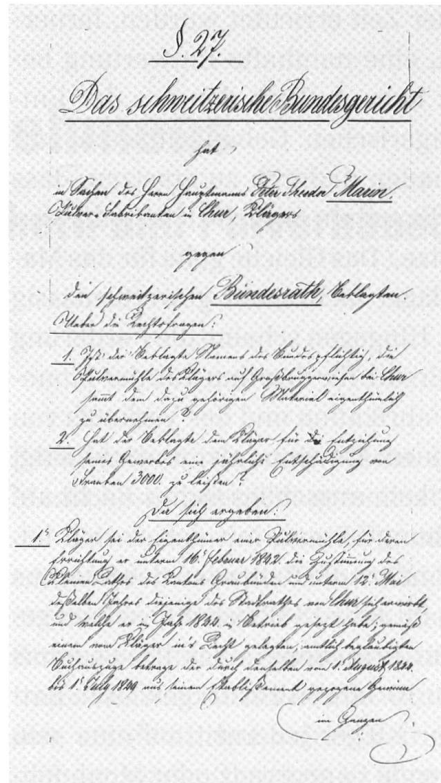 §. 27.
Das schweitzerische Bundesgericht
hat
in Sachen des Herrn Hauptmanns Peter Theodor Marin,
Pulver-Fabrikanten in Chur, Klägers
gegen
den schweitzerischen Bundesrath, Beklagten.
Ueber die Rechtsfragen:
1. Ist der Beklagte Namens des Bundes pflichtig, die
Pulvermühle des Klägers auf Großbruggerwiesen bei Chur
sammt dem dazu gehörigen Material eigenthümlich
zu übernehmen?
2. Hat der Beklagte dem Kläger für die Entziehung
seines Gewerbes eine jährliche Entschädigung von
Franken 3000. zu leisten?
Da sich ergeben:
1. Kläger sei der Eigenthümer einer Pulvermühle, für deren
Errichtung er unterm 16. Februar 1842. die Zustimmung des
Kleinen Rathes des Kantons Graubünden und unterm 12. Mai
desselben Jahres diejenige des Stadtrathes von Chur sich erwirkt,
und welche er im Jahr 1844. in Betrieb gesetzt habe; gemäß
einem vom Kläger in's Recht gelegten, amtlich beglaubigten
Buchauszuge betrage der durch denselben vom 1. August 1844.
bis 1. July 1849 aus seinem Etablissement gezogene Gewinn
im Ganzen